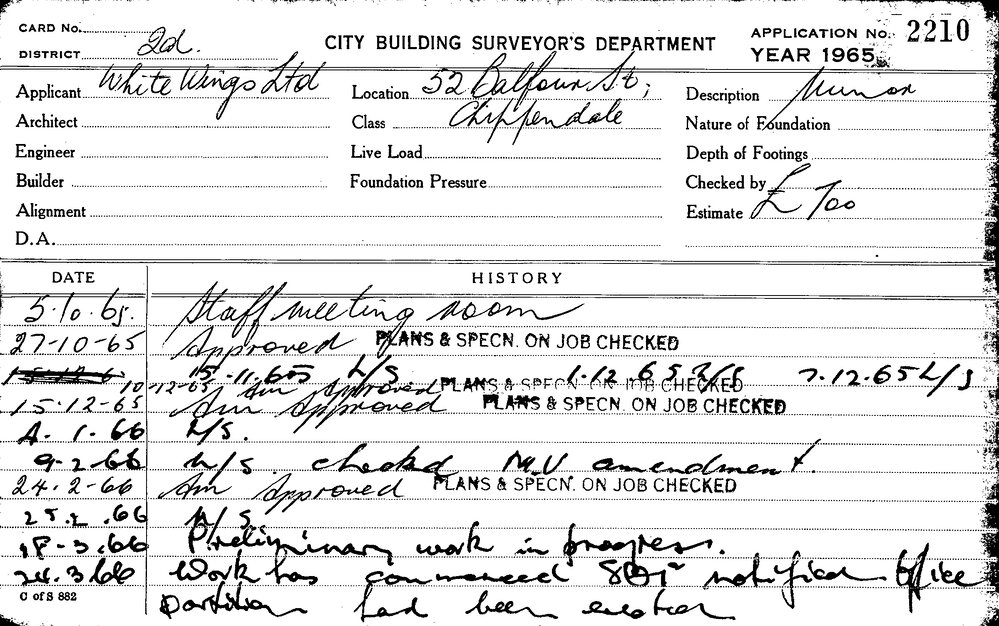 CARD No.
DISTRICT 2d.
CITY BUILDING SURVEYOR'S DEPARTMENT
APPLICATION No. 2210
YEAR 1965
Applicant White Wings Ltd
Location 52 Balfour St;
Description Minor
Architect
Class Chippendale
Nature of Foundation
Engineer
Live Load
Depth of Footings
Builder
Foundation Pressure
Checked by
Alignment
Estimate £ 700
D.A.
DATE HISTORY
5.10.65. Staff meeting room
27-10-65 Approved PLANS & SPECN. ON JOB CHECKED
15.11.65 1.12.65 7.12.65
10-12-65 Am Approved PLANS & SPECN. ON JOB CHECKED
15-12-65 Am Approved PLANS & SPECN. ON JOB CHECKED
1.66
9-2-66 checked M.V amendment.
24.2-66 Am Approved PLANS & SPECN. ON JOB CHECKED
25.2.66
18-3.66 Preliminary work in progress.
24.3.66 Work has commenced notified Office
partition had been
C of S 882